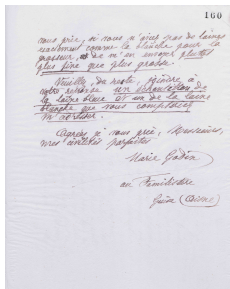 160
vous prie, si vous n'avez pas de laine
exactement comme la blanche pour la
grosseur, de m'en envoyer plutôt
plus fine que plus grosse.
Veuillez, du reste, joindre à
votre réponse un échantillon de
la laine bleue et un de la laine
blanche que vous comptez
m'adresser.
Agréez je vous prie, Messieurs,
mes civilités parfaites
Marie Godin
au Familistère
Guise (Aisne)